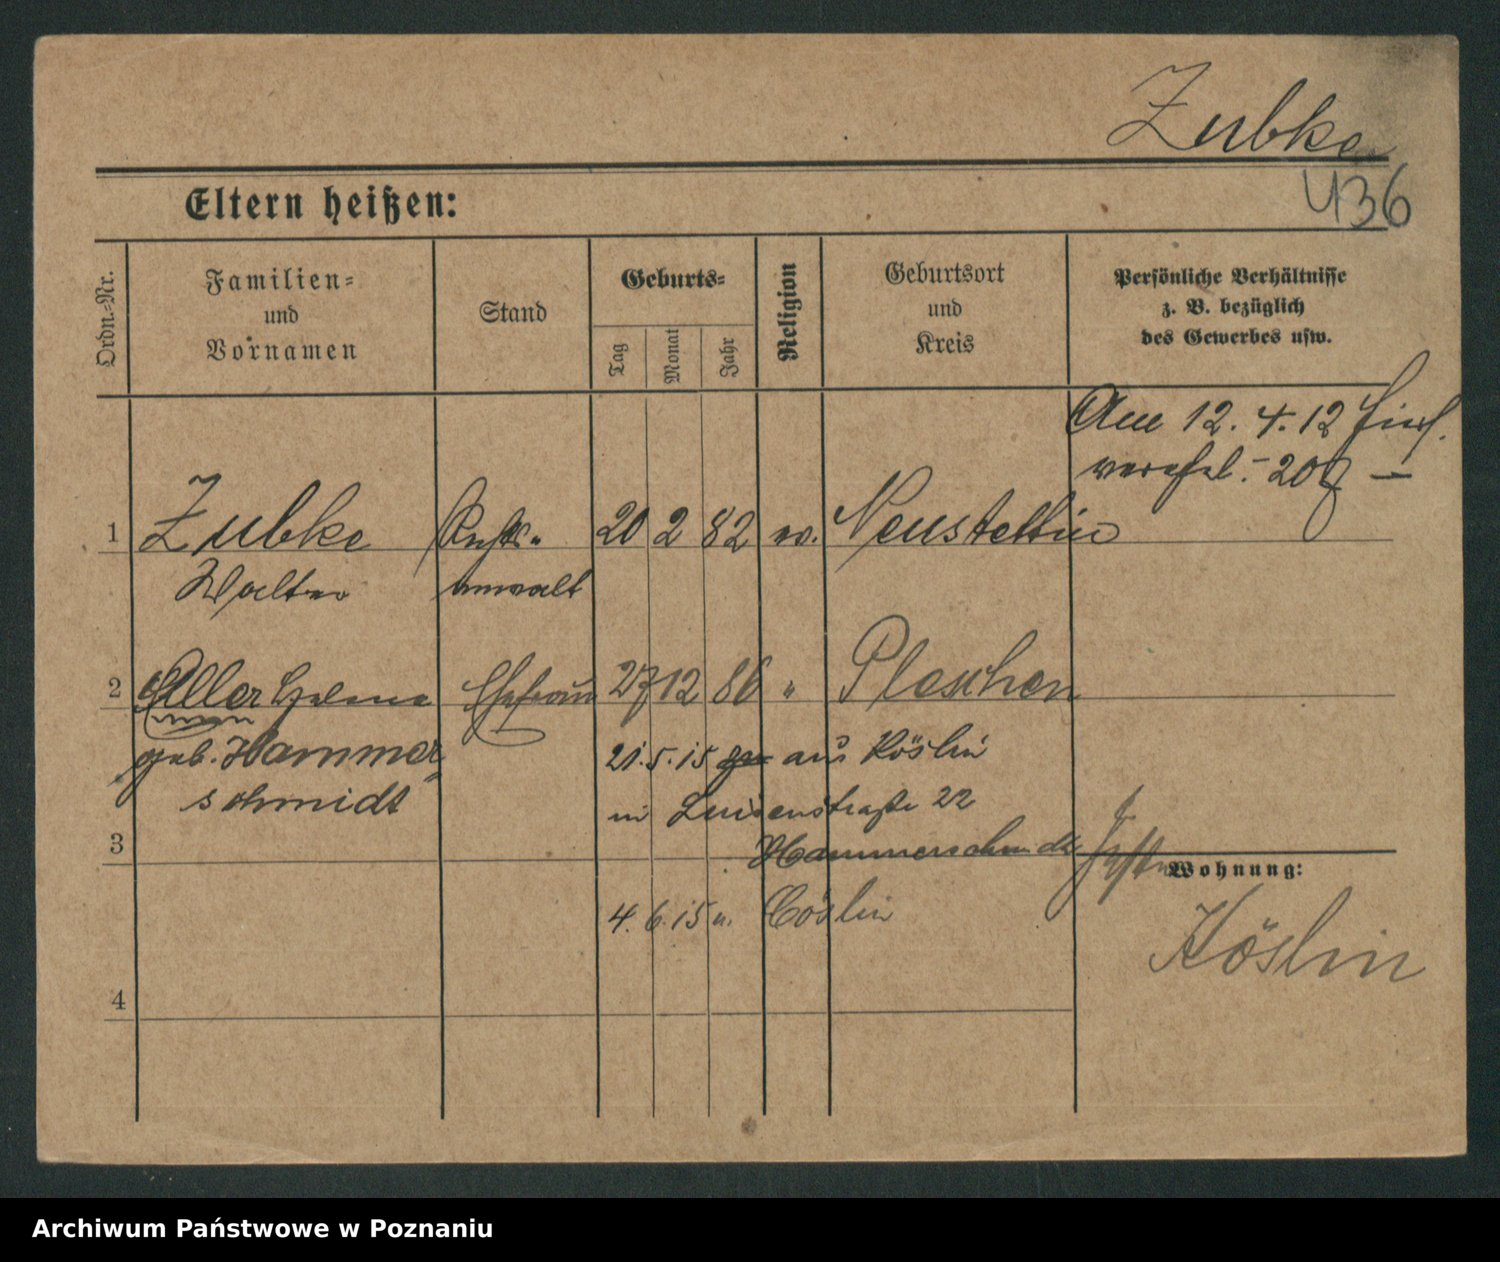 Zubke
436
Eltern heißen:
Ordn.-Nr.
Familien-
und
Vornamen
Stand
Geburts-
Tag
Monat
Jahr
Religion
Geburtsort
und
Kreis
Persönliche Verhältnisse
z. B. bezüglich
des Gewerbes usw.
Am 12. 4. 12
verehel.
1 Zubke Rechts- 20 2 82 ev. Neustettin
Walter anwalt
2 Ella Helene Ehefrau 27 12 86 " Pleschen
geb. Hammer
schmidt
21.5.15 aus Köslin
in Luisenstraße 22
3 Hammerschmidt
Wohnung:
4. 6. 15 n. Cöslin
Köslin
4
Archiwum Państwowe w Poznaniu